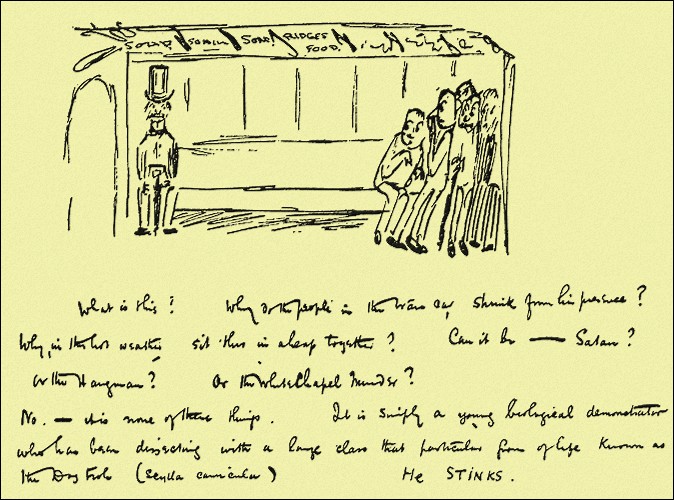 SOAP SOAP BRIDGES
FOOD
What is this? Why do the people in the tram car, shrink from his presence?
Why, in the hot weather sit thus in a heap together? Can it be — Satan?
Or the Hangman? Or the Whitechapel Murder?
No. — it is none of these things. It is simply a young biological demonstrator
who has been dissecting with a large class that particular form of life known as
the Dog fish (Scylla canicular) He STINKS.